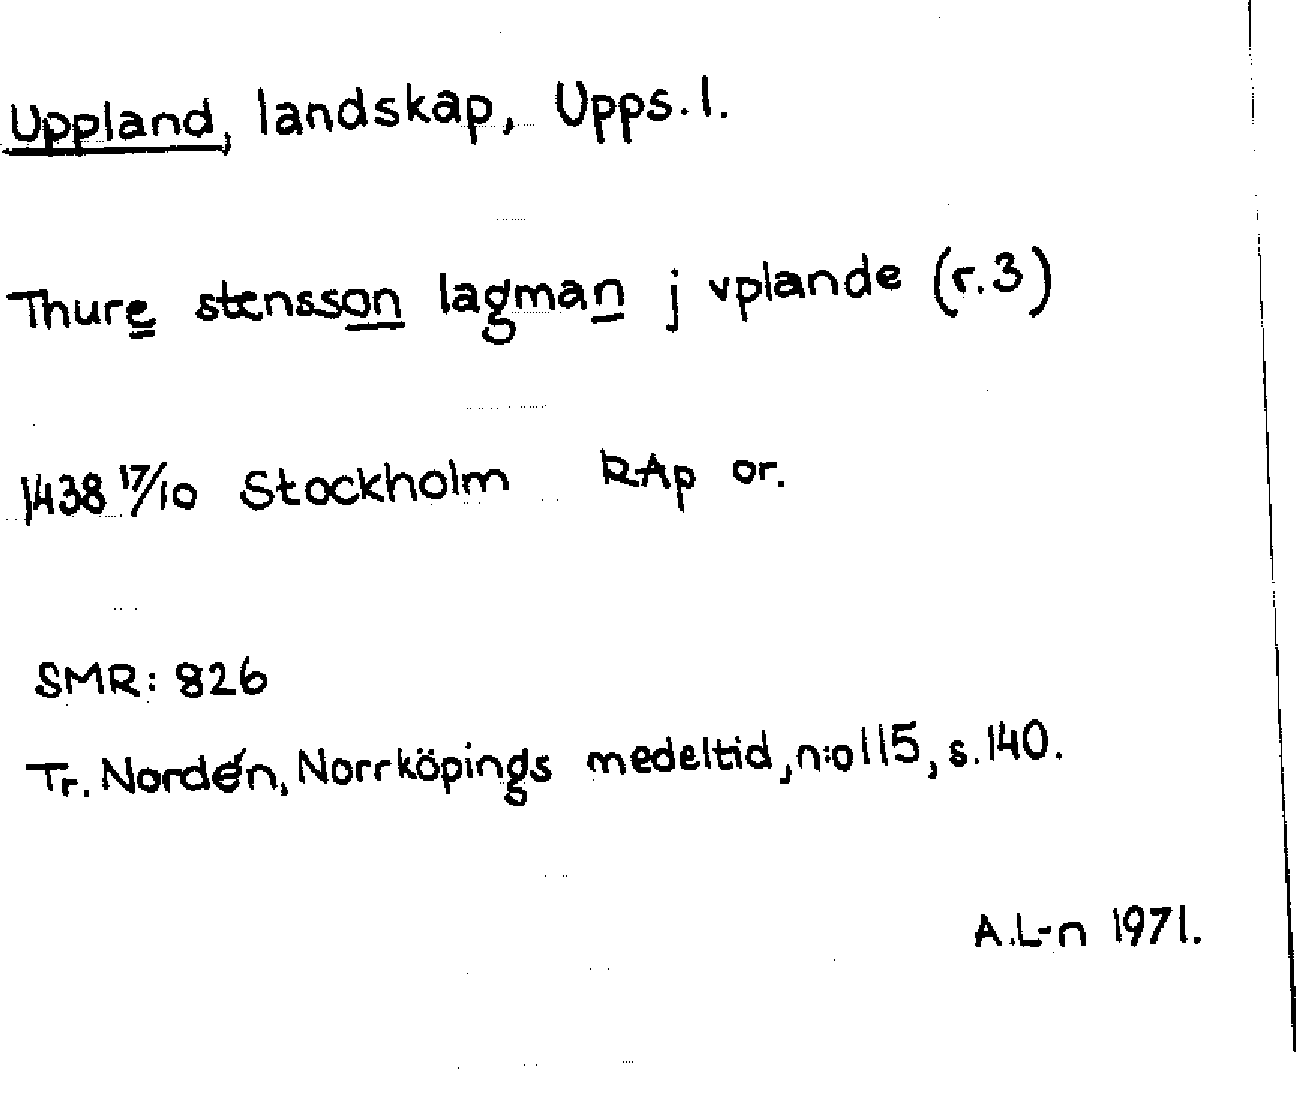 Uppland, landskap, Upps. l.
Thure stensson lagman j vplande (r.3)
1438 17/10 Stockholm RAp or.
SMR: 826
Tr. Nordén, Norrköpings medeltid, n:o 115, s. 140.
A.L-n 1971.